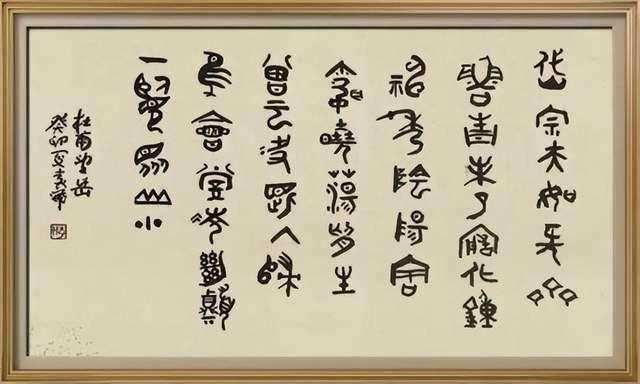 岱宗夫如何齊
魯青未了造化鍾
神秀陰陽割
昏曉蕩胸生
曾云決眥入歸
鳥會當凌絕頂
一覽眾山小
杜甫望岳
癸卯夏